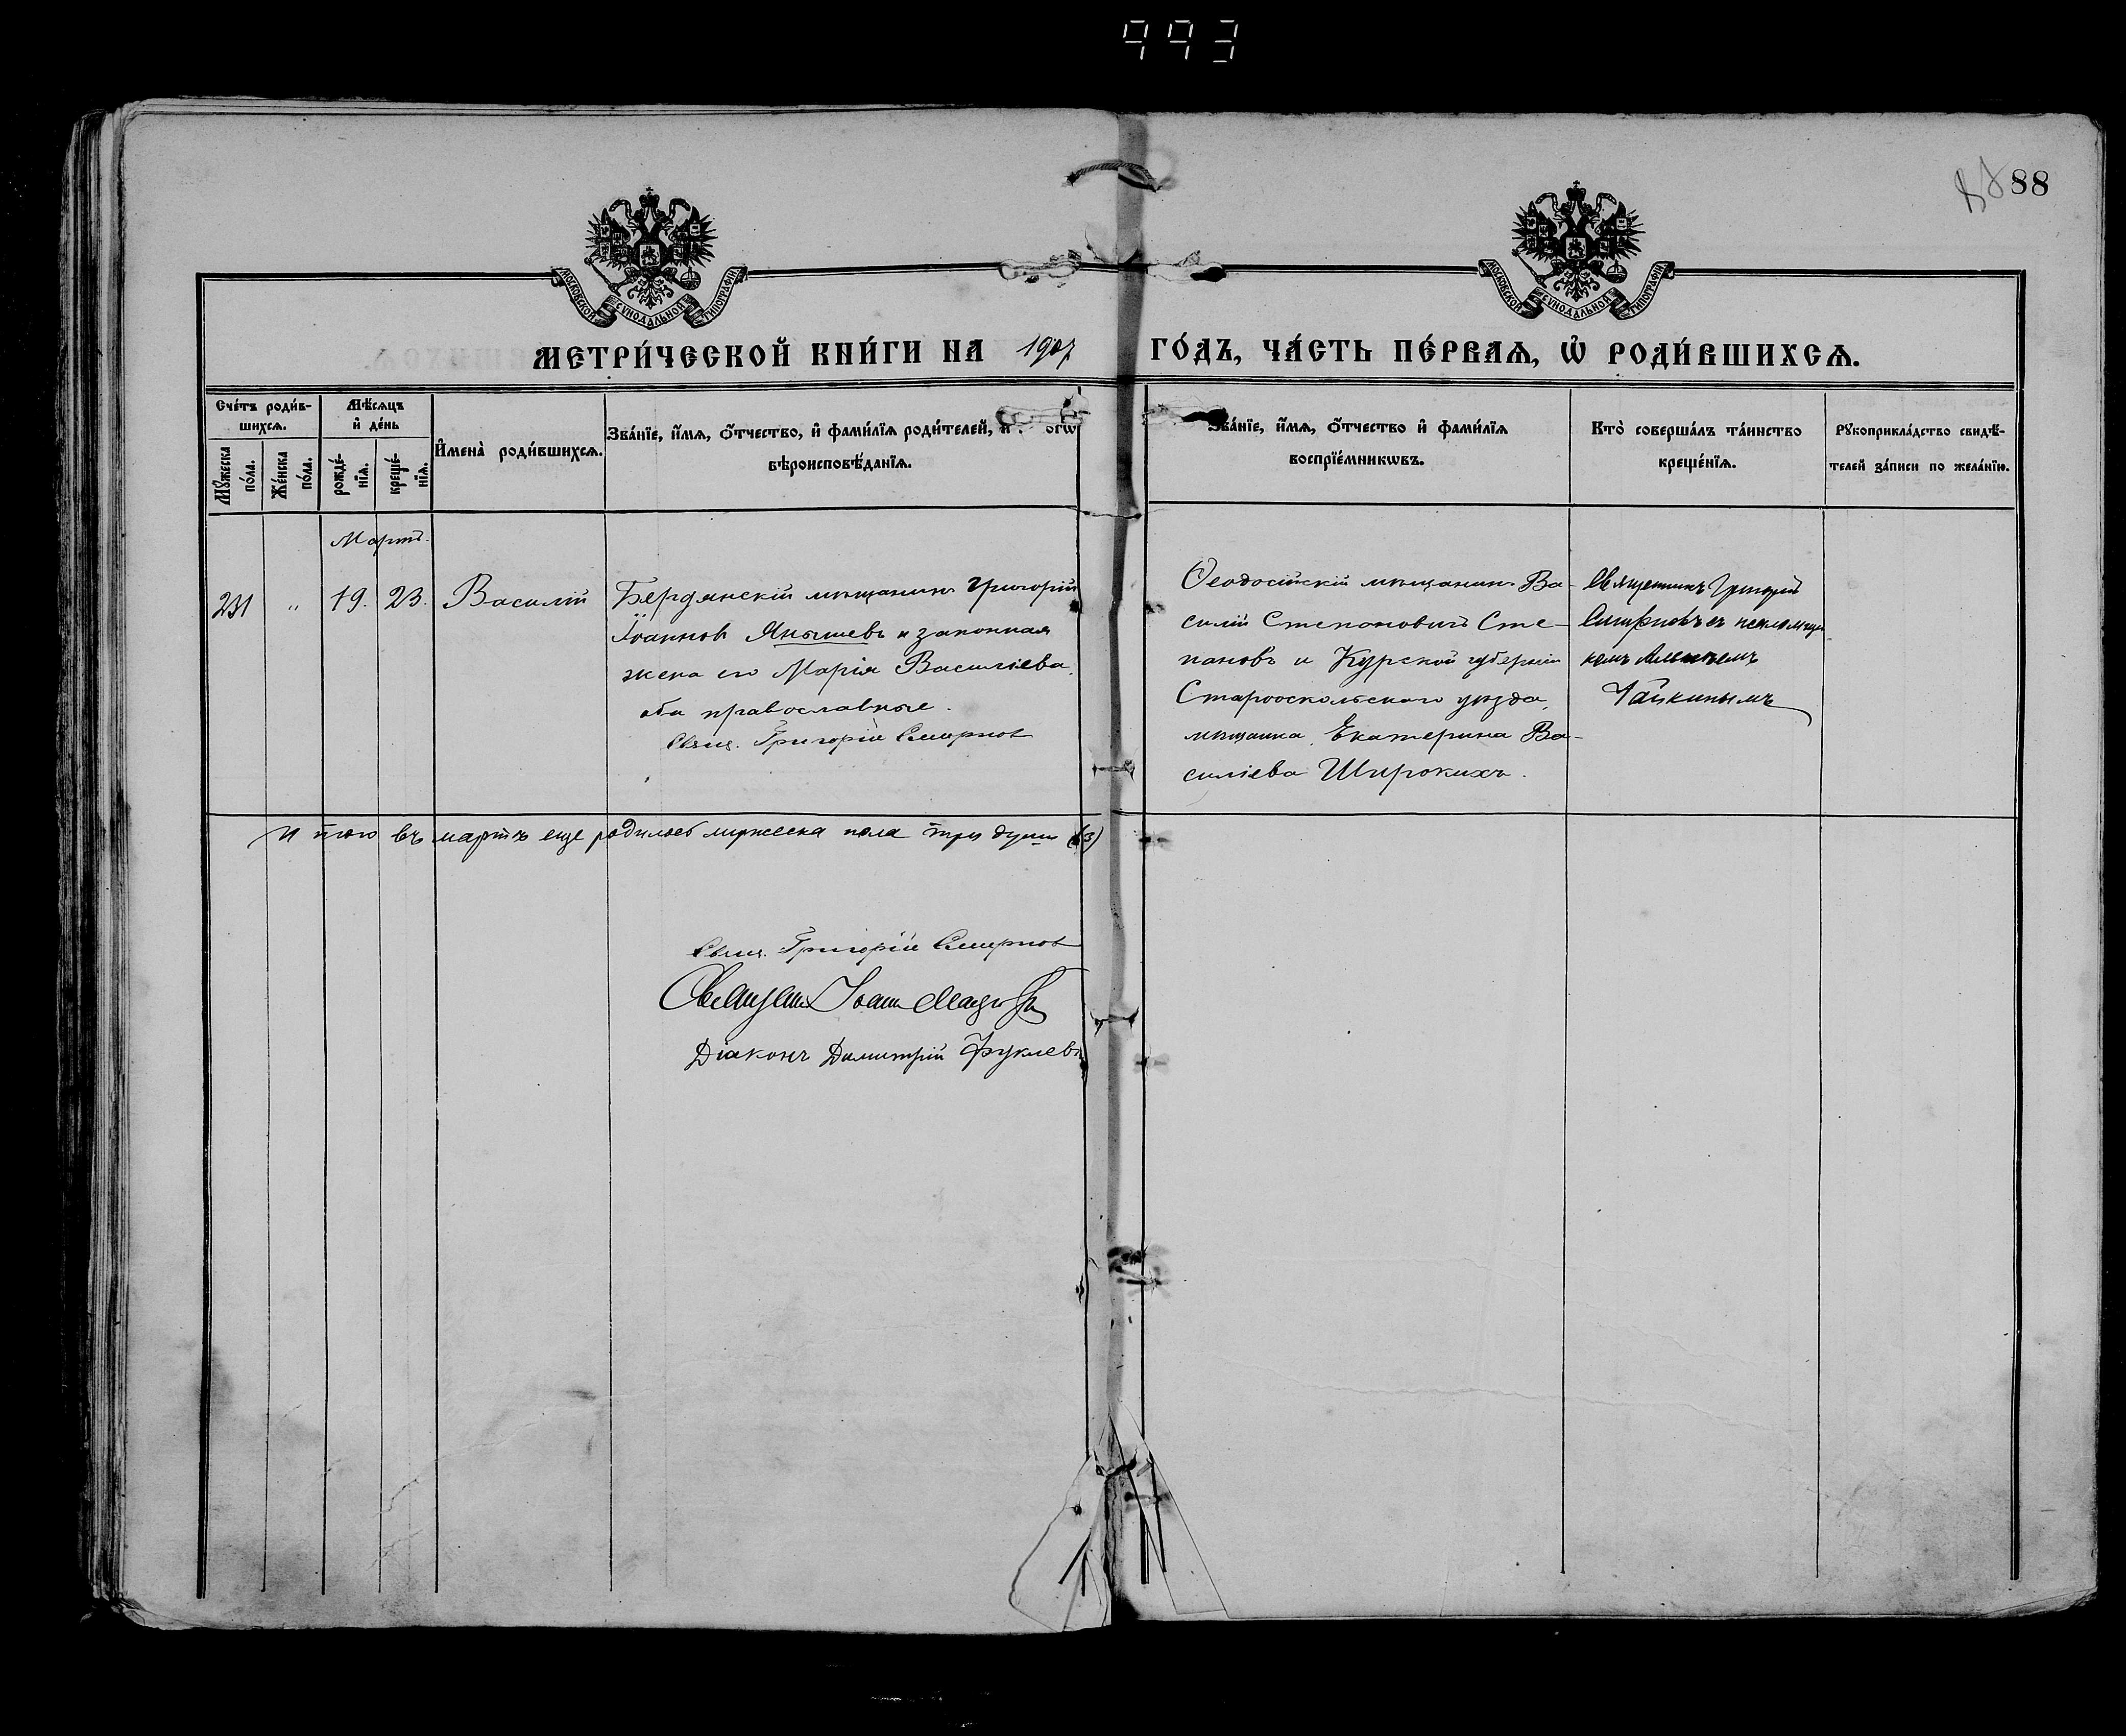 993
88 88
МОСКОВСКОЙ СѴНОДАЛЬНОЙ ТИПОГРАФІИ
МОСКОВСКОЙ СѴНОДАЛЬНОЙ ТИПОГРАФІИ
МЕТРИ́ЧЕСКОЙ КНИ́ГИ НА 1907 ГО́ДЪ, ЧА́СТЬ ПЕ́РВАѦ, Ѡ҆ РОДИ́ВШИХСѦ.
Сче́тъ роди́в-
шихсѧ.
Мꙋ́жеска по́ла.
Же́нска по́ла.
Мѣ́сѧцъ
и҆ де́нь
рожде́-
нїѧ.
креще́-
нїѧ.
И҆мена̀ роди́вшихсѧ.
Зва́нїе, и҆́мѧ, ѻ҆́тчество, и҆ фами́лїѧ роди́телей, и҆ огѡ
вѣроисповѣ́данїѧ.
Зва́нїе, и҆́мѧ, ѻ҆́тчество и҆ фами́лїѧ
воспрїе́мникѡвъ.
Кто̀ соверша́лъ та́инство
креще́нїѧ.
Рꙋкоприкла́дство свидѣ́-
телей за́писи по жела́нїю.
Мартъ.
231 " 19. 23. Василій
Бердянскій мѣщанинъ Григорій
Іоанновъ Янышевъ и законная
жена его Марія Василіева,
оба православные.
Свящ. Григорій Смирновъ
Ѳеодосійскій мѣщанинъ Ва-
силій Степановичъ Сте-
пановъ и Курской губерніи
Старооскольскаго уѣзда,
мѣщанка Екатерина Ва-
силіева Широкихъ.
Священникъ Григорій
Смирновъ съ псаломщи
комъ Алексѣемъ
Чайкинымъ
Итого въ мартѣ еще родилось мужеска пола три души (3)
Свящ. Григорій Смирновъ
Священникъ Іоаннъ
Діаконъ Димитрій